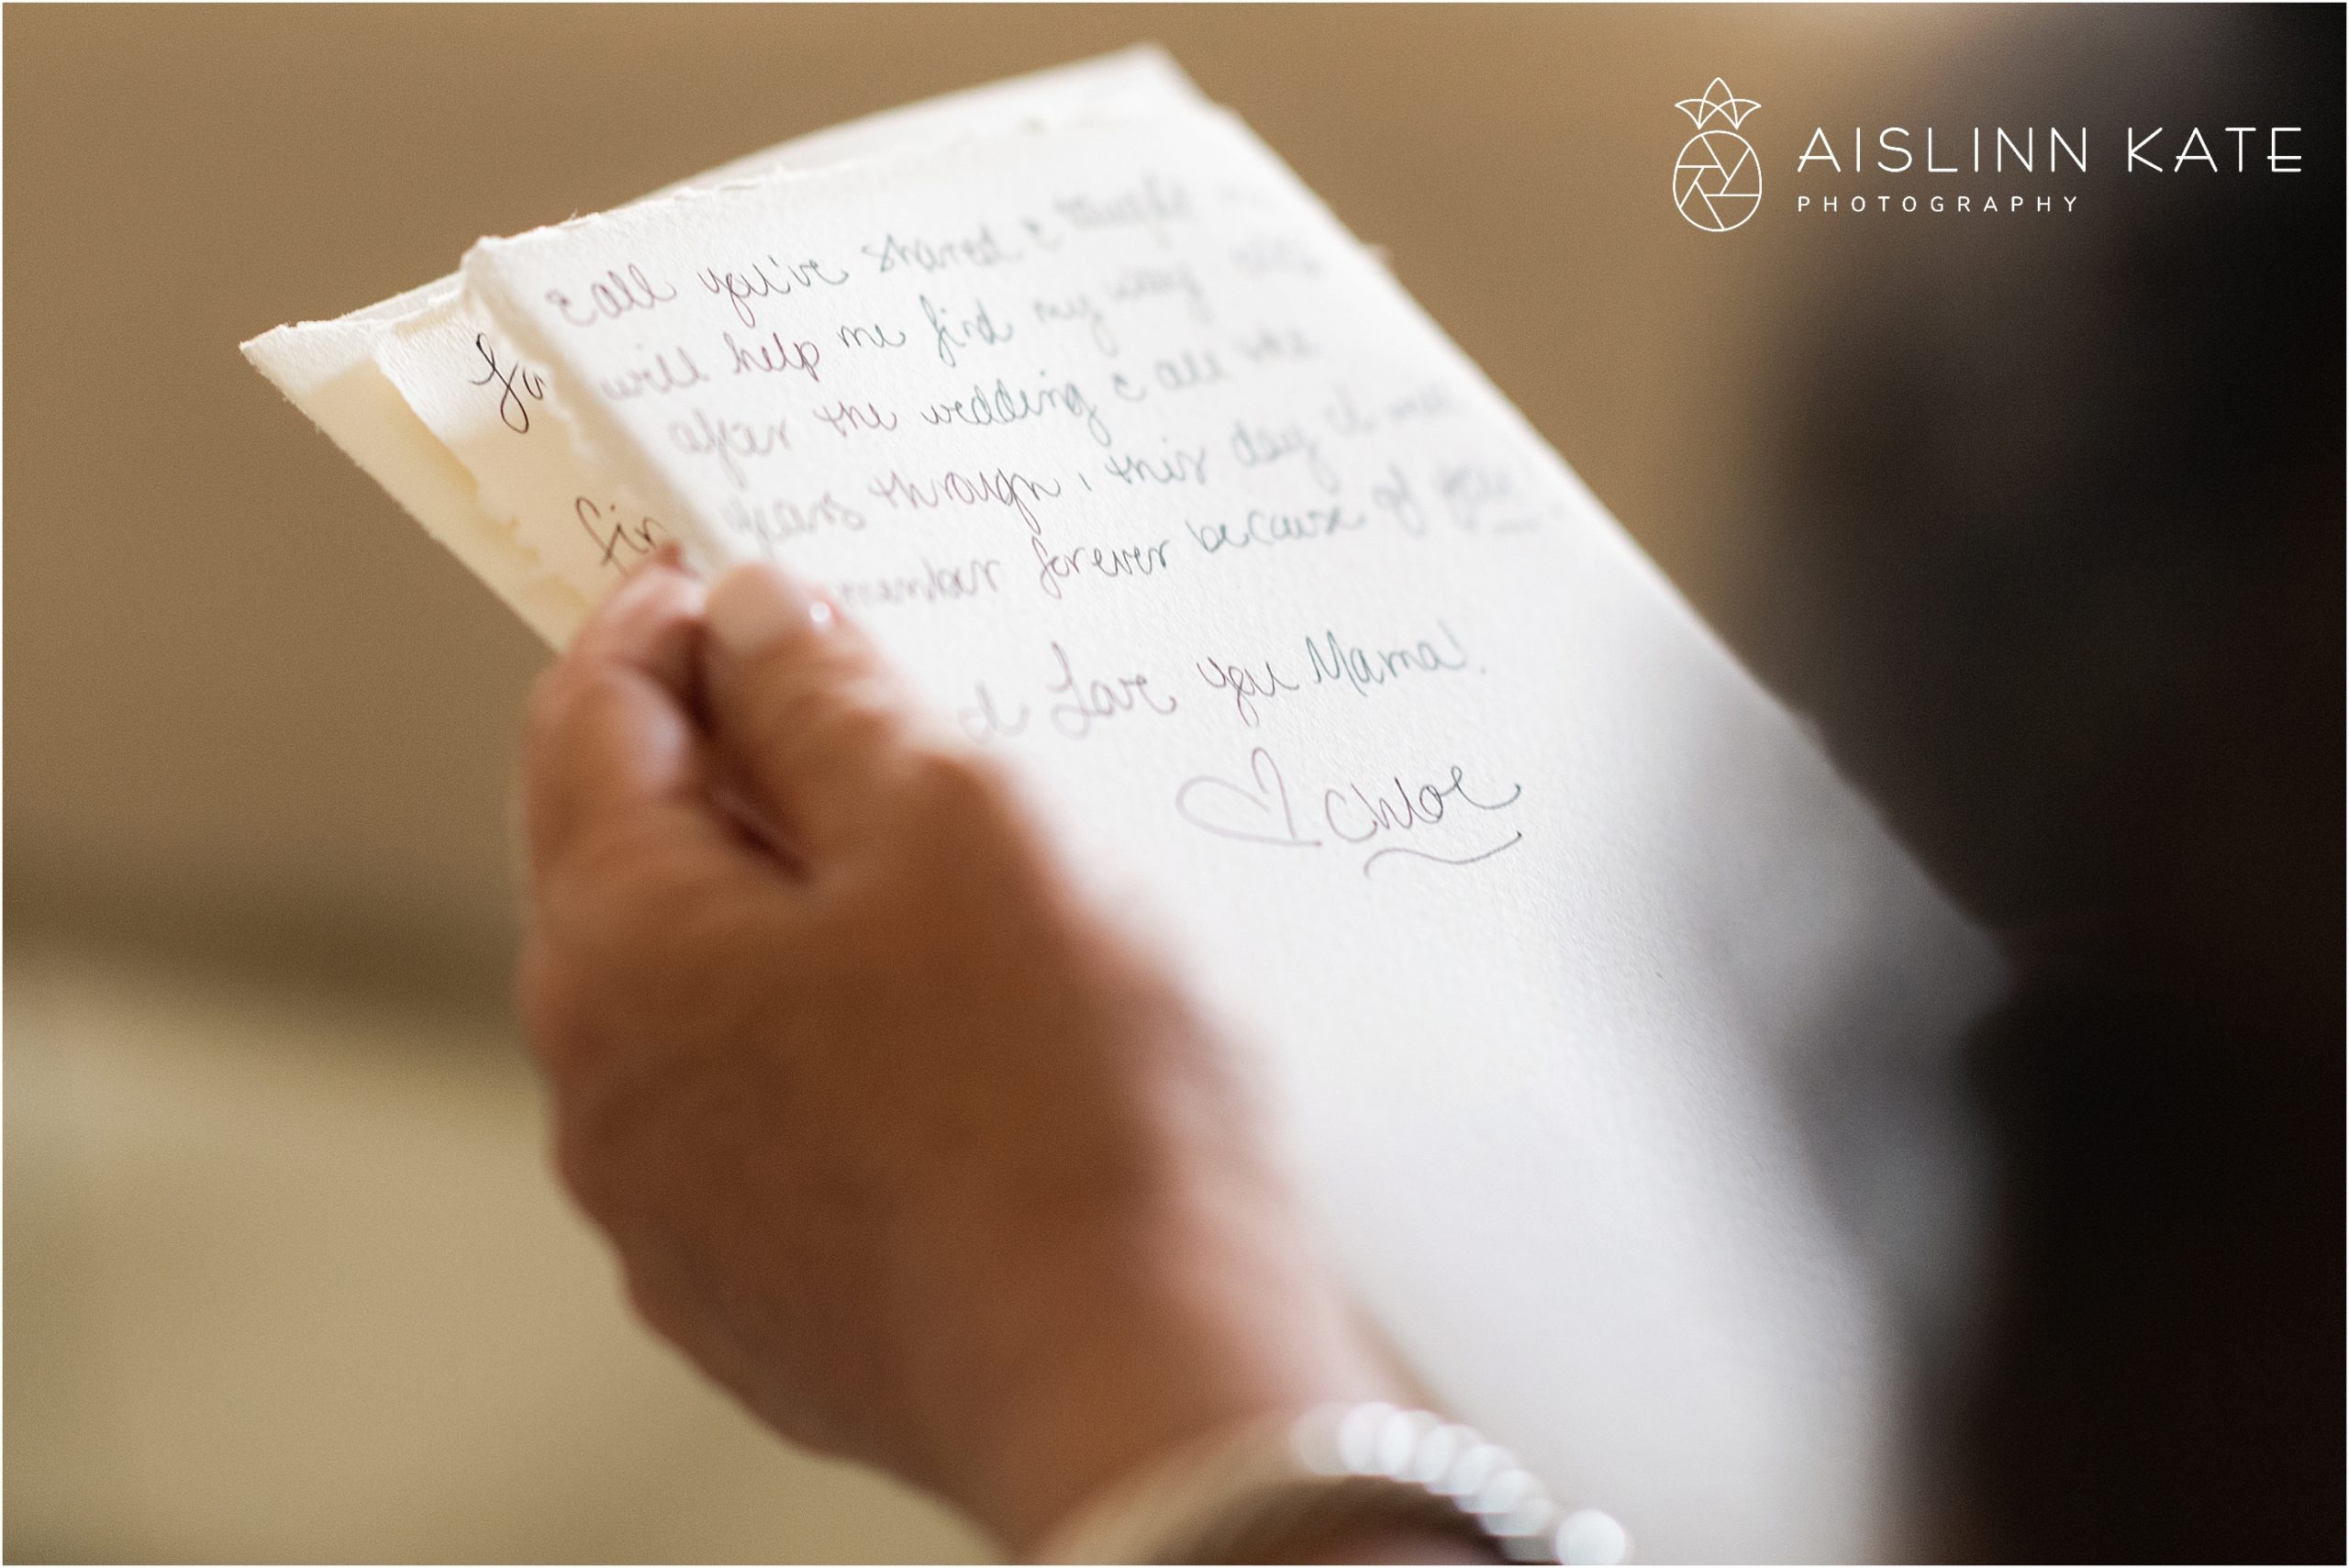 AISLINN KATE
PHOTOGRAPHY
& all you've shared & taught
will help me find my way
after the wedding & all the
years through, this day I will
remember forever because of you.
I Love you Mama!
♡ Chloe